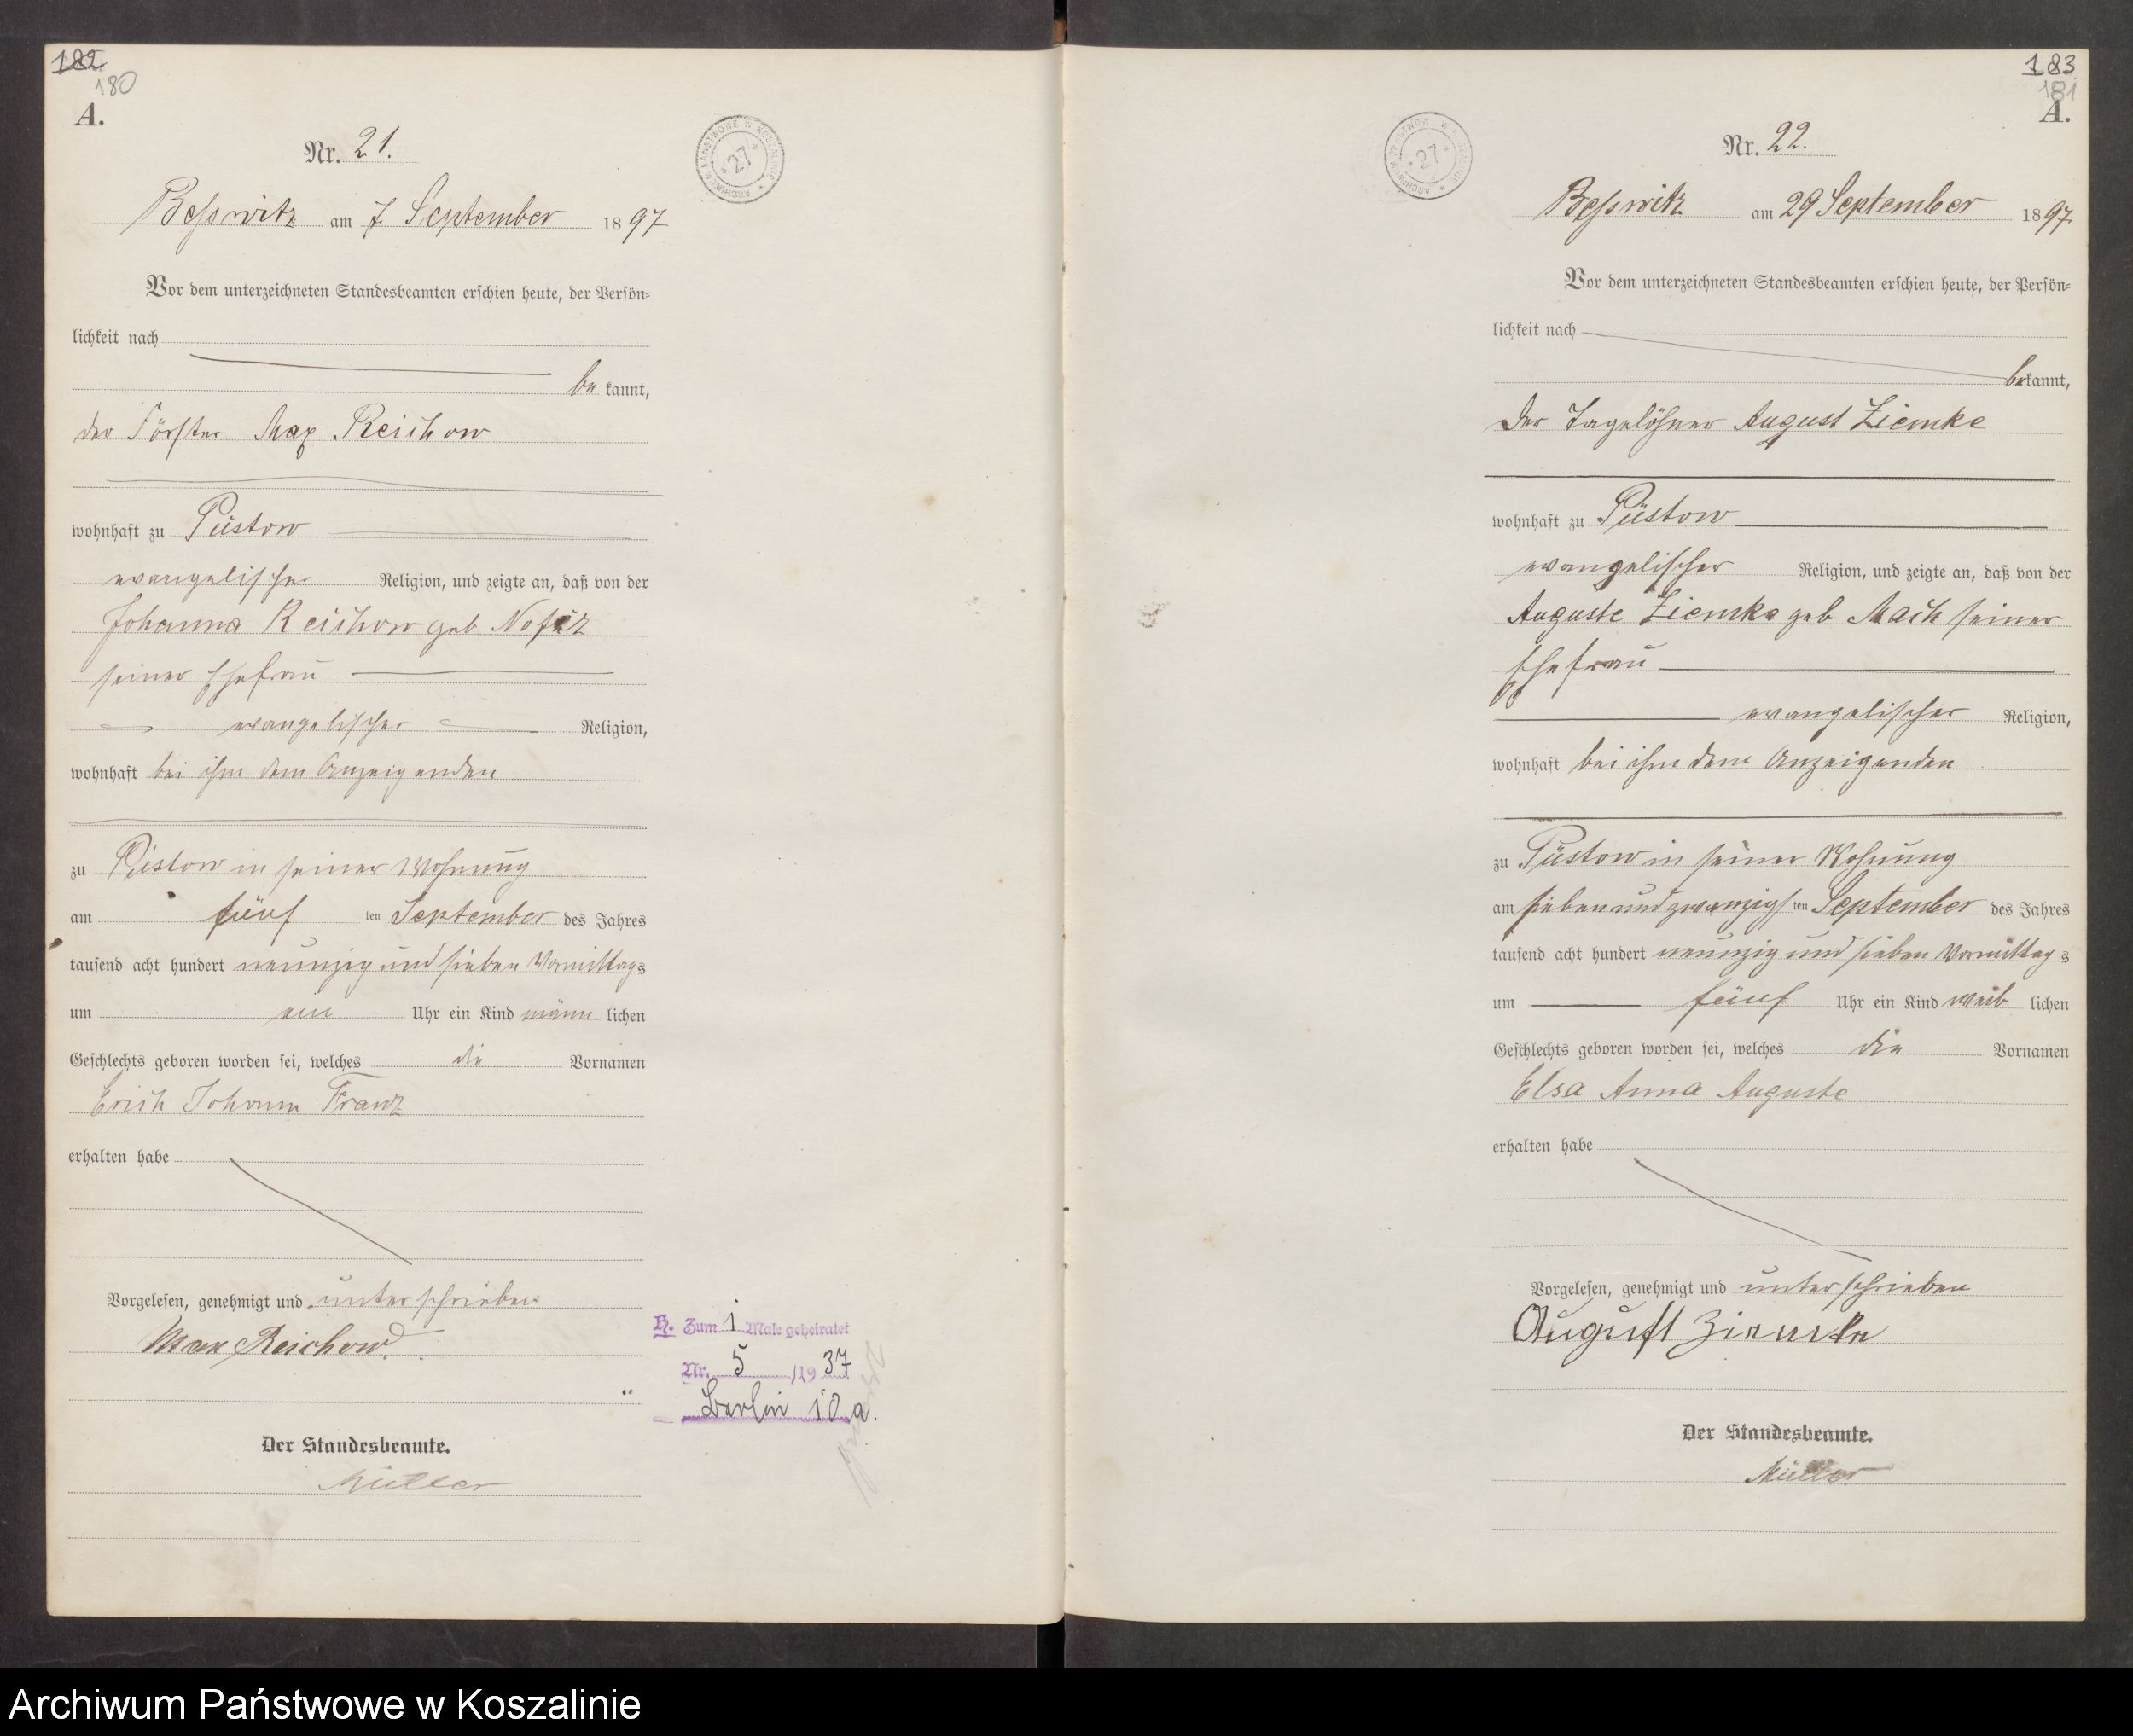 182
180
A.
Nr. 21.
Beßwitz am 7. September 1897
Vor dem unterzeichneten Standesbeamten erschien heute, der Persön=
lichkeit nach
be kannt,
der Förster Max Reichow
wohnhaft zu Püstow
evangelischer Religion, und zeigte an, daß von der
Johanna Reichow geb
seiner Ehefrau
evangelischer Religion,
wohnhaft bei ihm dem Anzeigenden
zu Püstow in seiner Wohnung
am fünf ten September des Jahres
tausend acht hundert neunzig und sieben Vormittags
um ein Uhr ein Kind männ lichen
Geschlechts geboren worden sei, welches die Vornamen
Erich Johann Franz
erhalten habe
Vorgelesen, genehmigt und unterschrieben
Max Reichow.
Der Standesbeamte.
Müller
ARCHIWUM PAŃSTWOWE W KOSZALINIE
27
H. Zum 1 Male geheiratet
Nr. 5 /1937
Berlin 10a.
183
181
A.
ARCHIWUM PAŃSTWOWE W KOSZALINIE
27
Nr. 22.
Beßwitz am 29 September 1897
Vor dem unterzeichneten Standesbeamten erschien heute, der Persön=
lichkeit nach
bekannt,
Der Tagelöhner August Ziemke
wohnhaft zu Püstow
evangelischer Religion, und zeigte an, daß von der
Auguste Ziemke geb Mach seiner
Ehefrau
evangelischer Religion,
wohnhaft bei ihm dem Anzeigenden
zu Püstow in seiner Wohnung
am siebenundzwanzigsten September des Jahres
tausend acht hundert neunzig und sieben Vormittag s
um fünf Uhr ein Kind weib lichen
Geschlechts geboren worden sei, welches die Vornamen
Elsa Anna Auguste
erhalten habe
Vorgelesen, genehmigt und unterschrieben
August Ziemke
Der Standesbeamte.
Müller
Archiwum Państwowe w Koszalinie